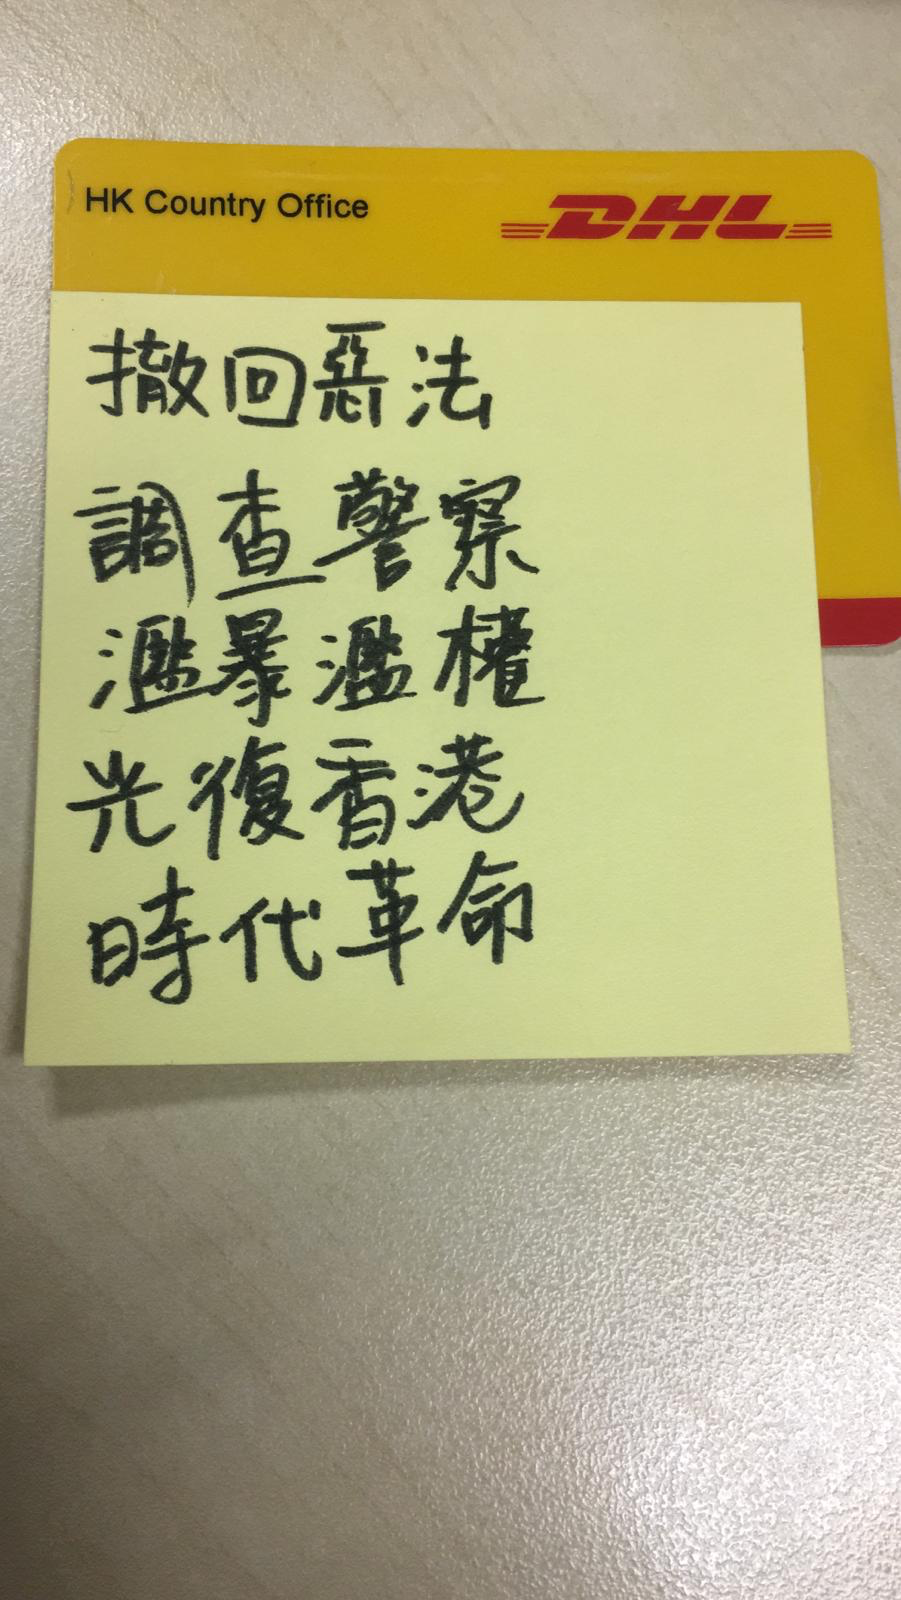 HK Country Office
DHL
撤回惡法
調查警察
濫暴濫權
光復香港
時代革命